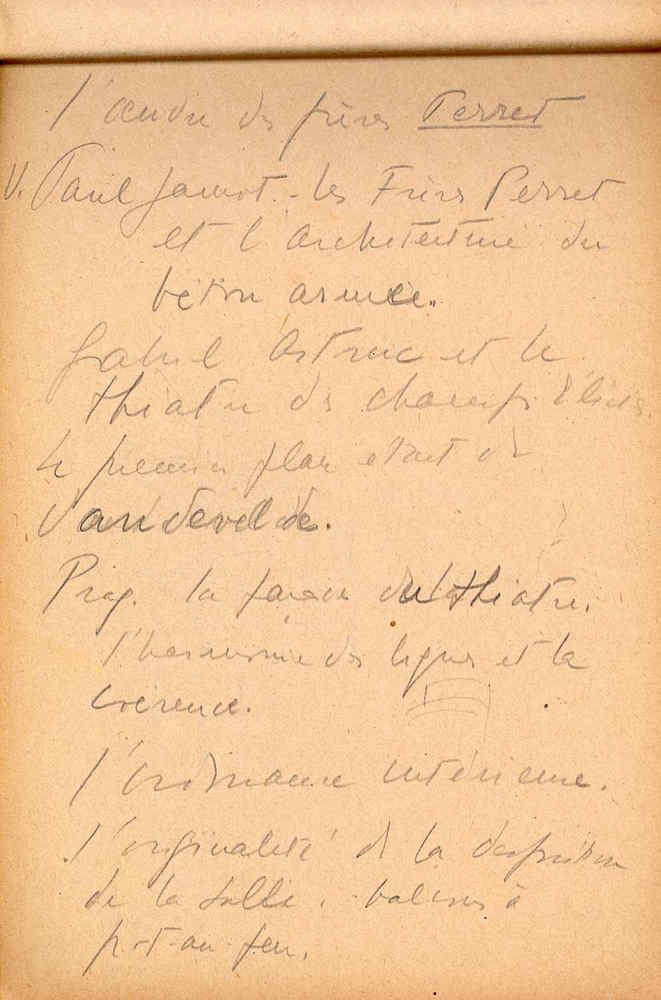 l'œuvre des frères Perret
V. Paul Jamot. - les Frères Perret
et l'architecture du
béton armée.
Gabriel Astruc et le
théatre des champs Elisées.
Le premier plan était de
Vandevelde.
Proj. la façade du théatre.
l'harmonie des lignes et la
l'ordonnance intérieure.
l'originalité de la disposition
de la salle. balcons à